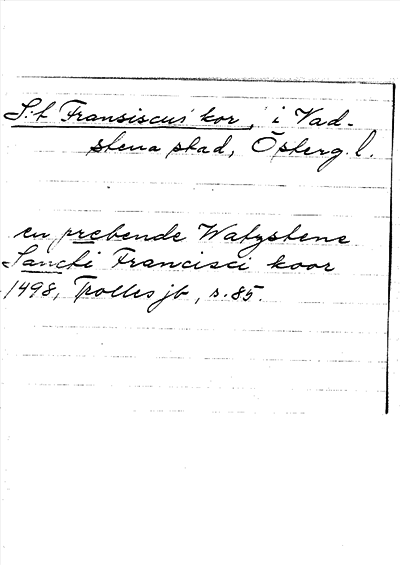 S:t Fransiscus' kor, i Vad-
stena stad, Österg. l.
en prebende Watzstene
Sancti Francisci koor
1498, Trolles jb, s. 85.